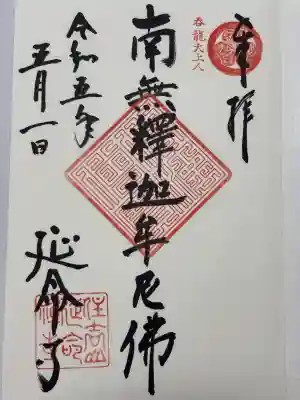 奉拝
呑龍大上人
南無釋迦牟尼佛
令和五年
五月一日
延命寺